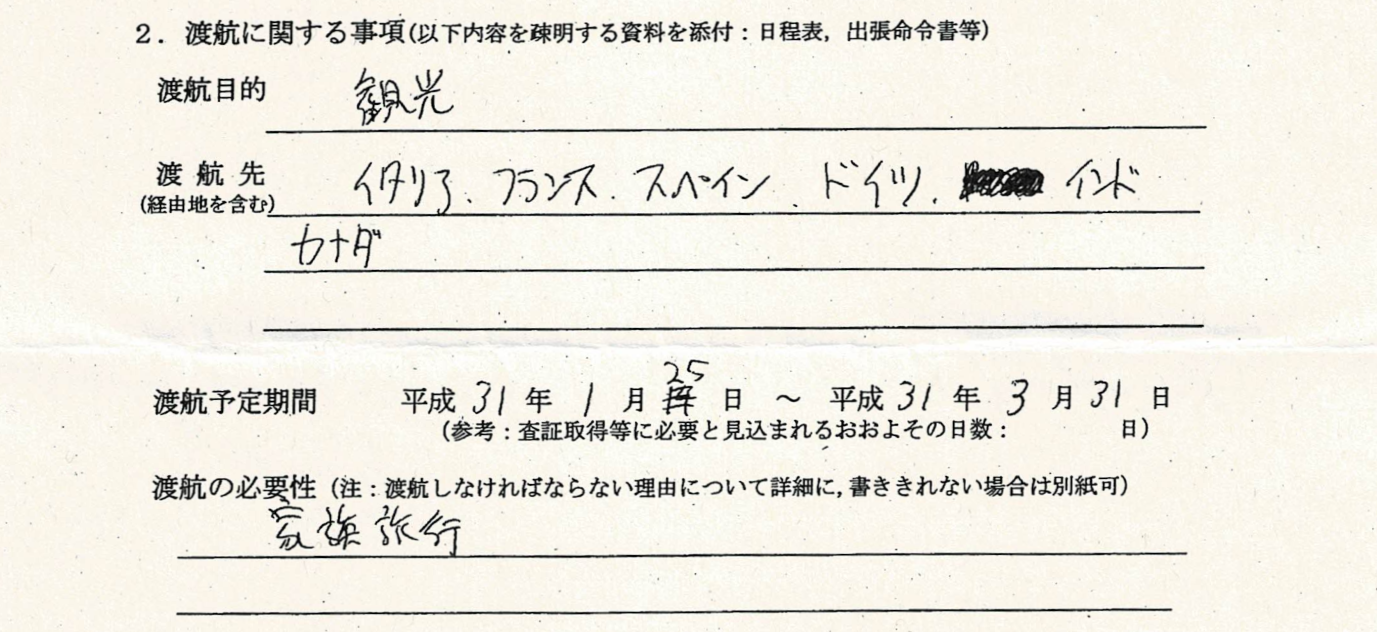 2．渡航に関する事項(以下内容を疎明する資料を添付：日程表，出張命令書等)
渡航目的 観光
渡航先 イタリア、フランス、スペイン、ドイツ、インド
(経由地を含む)
カナダ
25
渡航予定期間 平成31年1月日～平成31年3月31日
(参考：査証取得等に必要と見込まれるおおよその日数： 日)
渡航の必要性（注：渡航しなければならない理由について詳細に，書ききれない場合は別紙可）
家族旅行